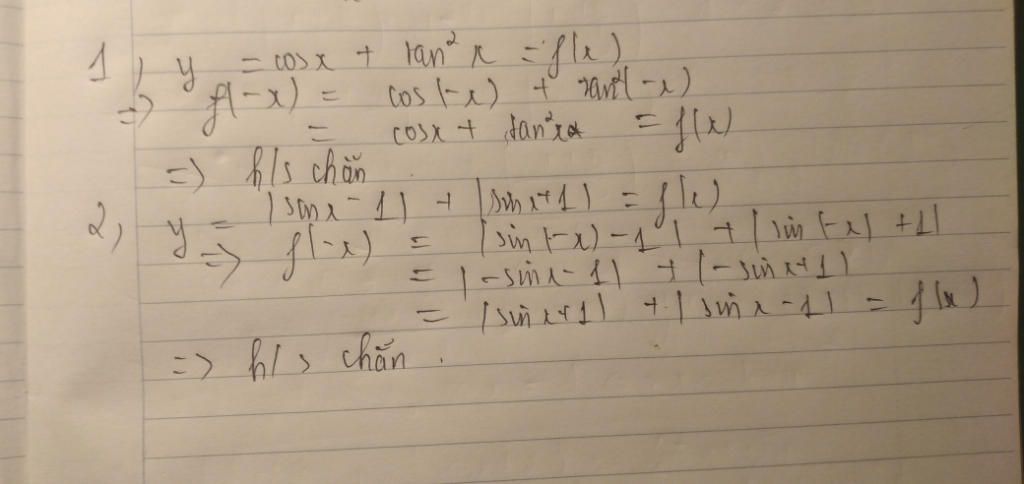 1, y = cosx + tan² x = f(x)
=> f(-x) = cos(-x) + tan²(-x)
= cosx + tan²x = f(x)
=> h/s chẵn
2, y = |sinx - 1| + |sinx+1| = f(x)
=> f(-x) = |sin(-x) - 1| + |sin(-x) + 1|
= |-sinx - 1| + |-sinx+1|
= |sinx+1| + |sinx - 1| = f(x)
=> h/s chẵn.